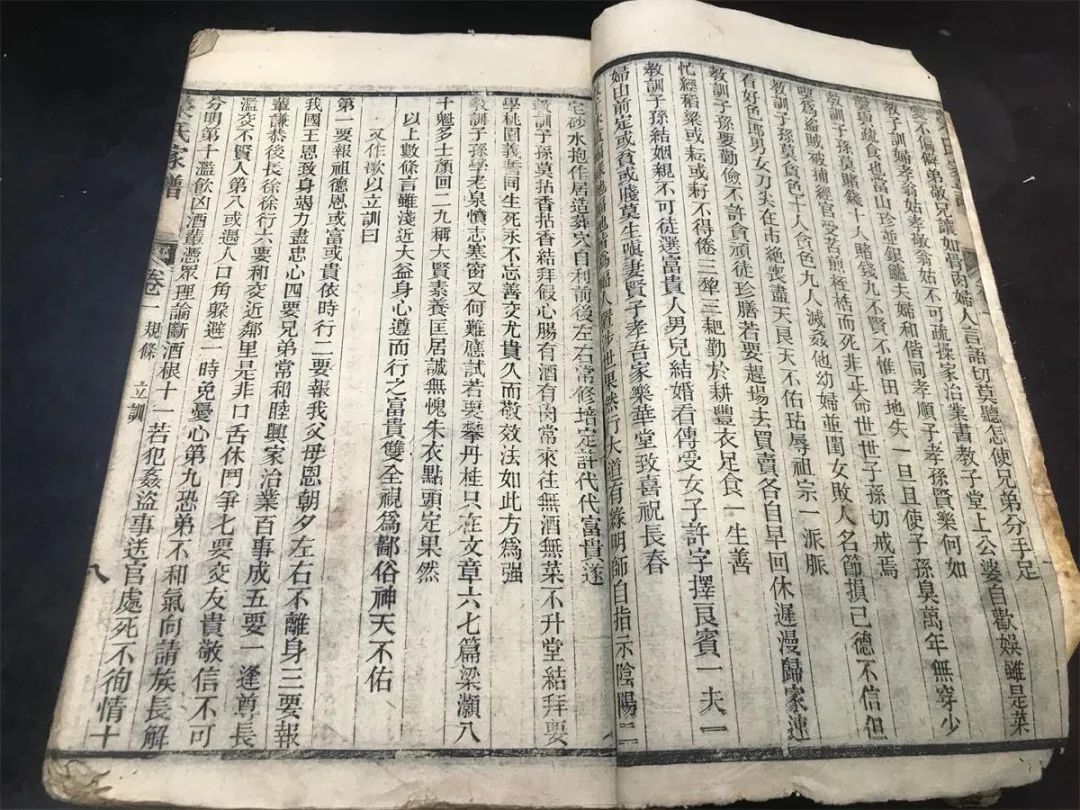 愛不偏僻弟敬兄讓如骨肉婦人言語切莫聽忍使兄弟分手足
教子訓婦孝翁姑孝敬翁姑不可疏操家治業書教子堂上公婆自歡娛雖是菜
羹疏食也富山珍並銀鱸夫婦和偕同孝順子孝孫賢樂何如
教訓子孫莫賭錢十人賭錢九不賢不惟田地失一旦且使子孫臭萬年無穿少
為盜賊被捕經官受苦煎桎梏而死非正命世世子孫切戒焉
教訓子孫莫貪色十人貪色九人滅姦他幼婦並閨女敗人名節損己德不信但
看好色郎男女刀夫在市絶喪盡天良天不佑玷辱祖宗一派脈
教訓子孫要勤儉不許貪頑徒珍膳若要趕場去買賣各自早回休遲漫歸家連
忙經稻粱或耘或耔不得倦三犂三耙勤於耕豐衣足食一生善
教訓子孫結姻親不可徒選富貴人男兒結婚看傳受女子許字擇良賓一夫一
婦由前定或貧或賤莫生嗔妻賢子孝吾家樂華堂致喜祝長春
世果然行大道有緣明師自指示陰陽二
宅砂水抱作居造葬穴自利前後左右常修培定許代代富貴遂
教訓子孫莫拈香拈香結拜假心腸有酒有肉常來往無酒無菜不升堂結拜要
學桃園義誓同生死永不忘善交尤貴久而敬效法如此方為強
教訓子孫學老泉憤志寒窗又何難應試若要攀丹桂只在文章六七篇梁灝八
十魁多士顏回二九稱大賢素養匡居誠無愧朱衣點頭定果然
以上數條言雖淺近大益身心遵而行之富貴雙全視為鄙俗神天不佑
又作歌以立訓曰
第一要報祖德恩或富或貴依時行二要報我父母恩朝夕左右不離身三要報
我國王恩致身竭力盡忠心四要兄弟常和睦興家治業百事成五要一逢尊長
輩謙恭後長徐徐行六要和交近鄰里是非口舌休鬥爭七要交友貴敬信不可
濫交不賢人第八或遇人口角躲避一時免憂心第九恐弟不和氣向請族長解
分明第十濫飲凶酒輩憑眾理論斷酒根十一若犯姦盜事送官處死不徇情十
氏家譜
卷一
規條
立訓
八